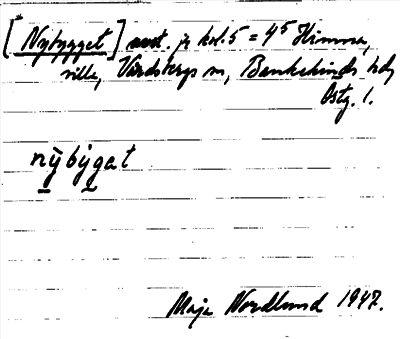 [*Nybygget] avst. jr kol. 5 = 4⁵ Himme,
ville, Vårdsbergs sn, Bankekinds hd,
Östg. l.
nybygat
Maja Nordlund 1947.